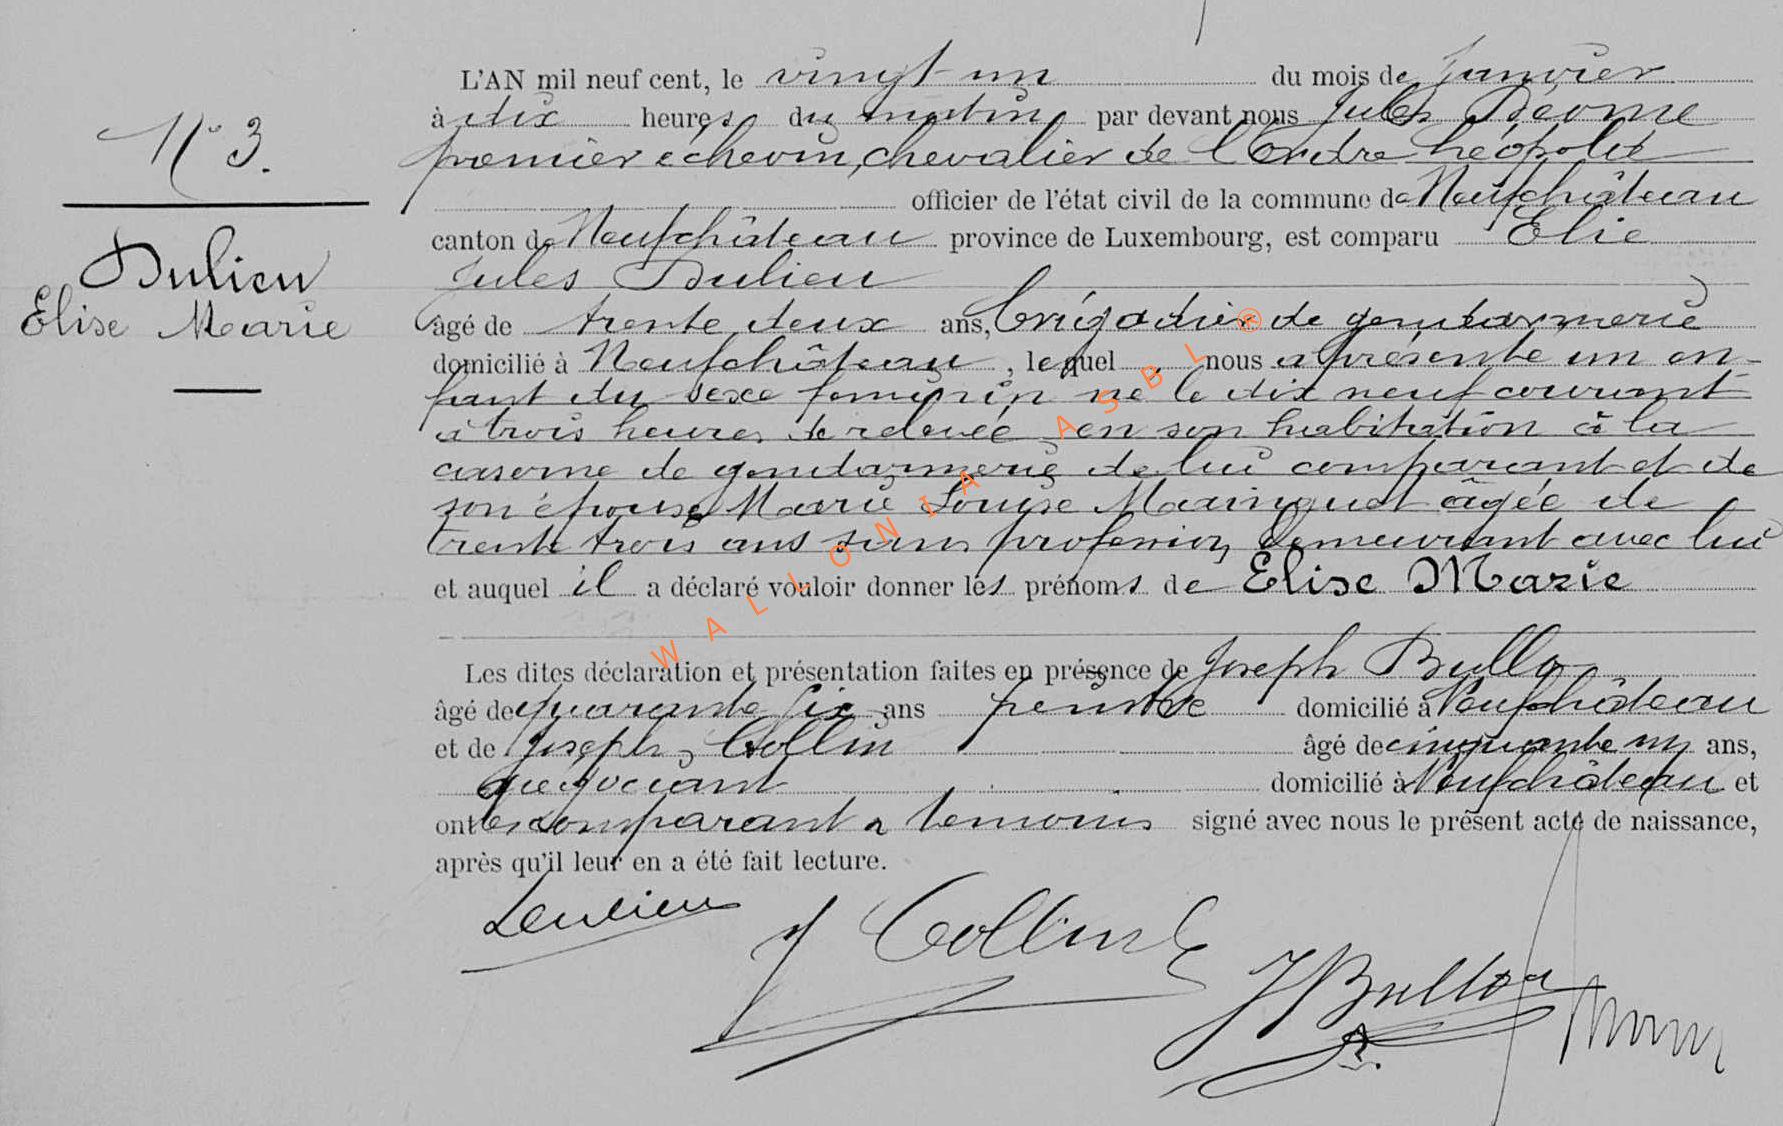 L'AN mil neuf cent, le vingt un du mois de Janvier
à dix heures du matin par devant nous Jules Déome
N° 3.
premier echevin, chevalier de l'Ordre Léopold
officier de l'état civil de la commune de Neufchâteau
canton de Neufchâteau province de Luxembourg, est comparu Elie
Dulieu
Jules Dulieu
Elise Marie
âgé de trente deux ans, brigadier de gendarmerie
domicilié à Neufchâteau, lequel nous a présenté un en-
fant du sexe feminin né le dix neuf courant
à trois heures de relevée, en son habitation à la
caserne de gendarmerie de lui comparant et de
son épouse Marie Louise âgée de
trente trois ans sans profession, demeurant avec lui
et auquel il a déclaré vouloir donner les prénoms de Elise Marie
WALLONIA ASBL ®
Les dites déclaration et présentation faites en présence de Joseph
âgé de quarante six ans peintre domicilié à Neufchâteau
et de Joseph Collin âgé de cinquante un ans,
négociant domicilié à Neufchâteau et
ont les comparant & temoins signé avec nous le présent acte de naissance,
après qu'il leur en a été fait lecture.
J Collin